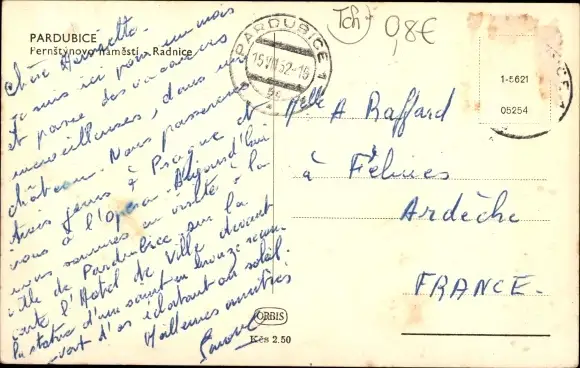 PARDUBICE
Fernštýnovo náměstí - Radnice
Chère
Je suis ici pour un mois
et passe des vacances
merveilleuses, dans un
château. Nous passerons
trois jours à Prague et
à l'Opéra. Aujourd'hui
nous sommes en visite à la
ville de Pardubice sur la
carte l'Hôtel de Ville devant
la statue d'un saint en bronze
vert d'or éclatant au soleil.
Meilleures amitiés
PARDUBICE 1
15.VII.62-16
Tch
0,8€
1-5621
05254
Melle A Raffard
à Félines
Ardèche
FRANCE.
ORBIS
Kčs 2.50